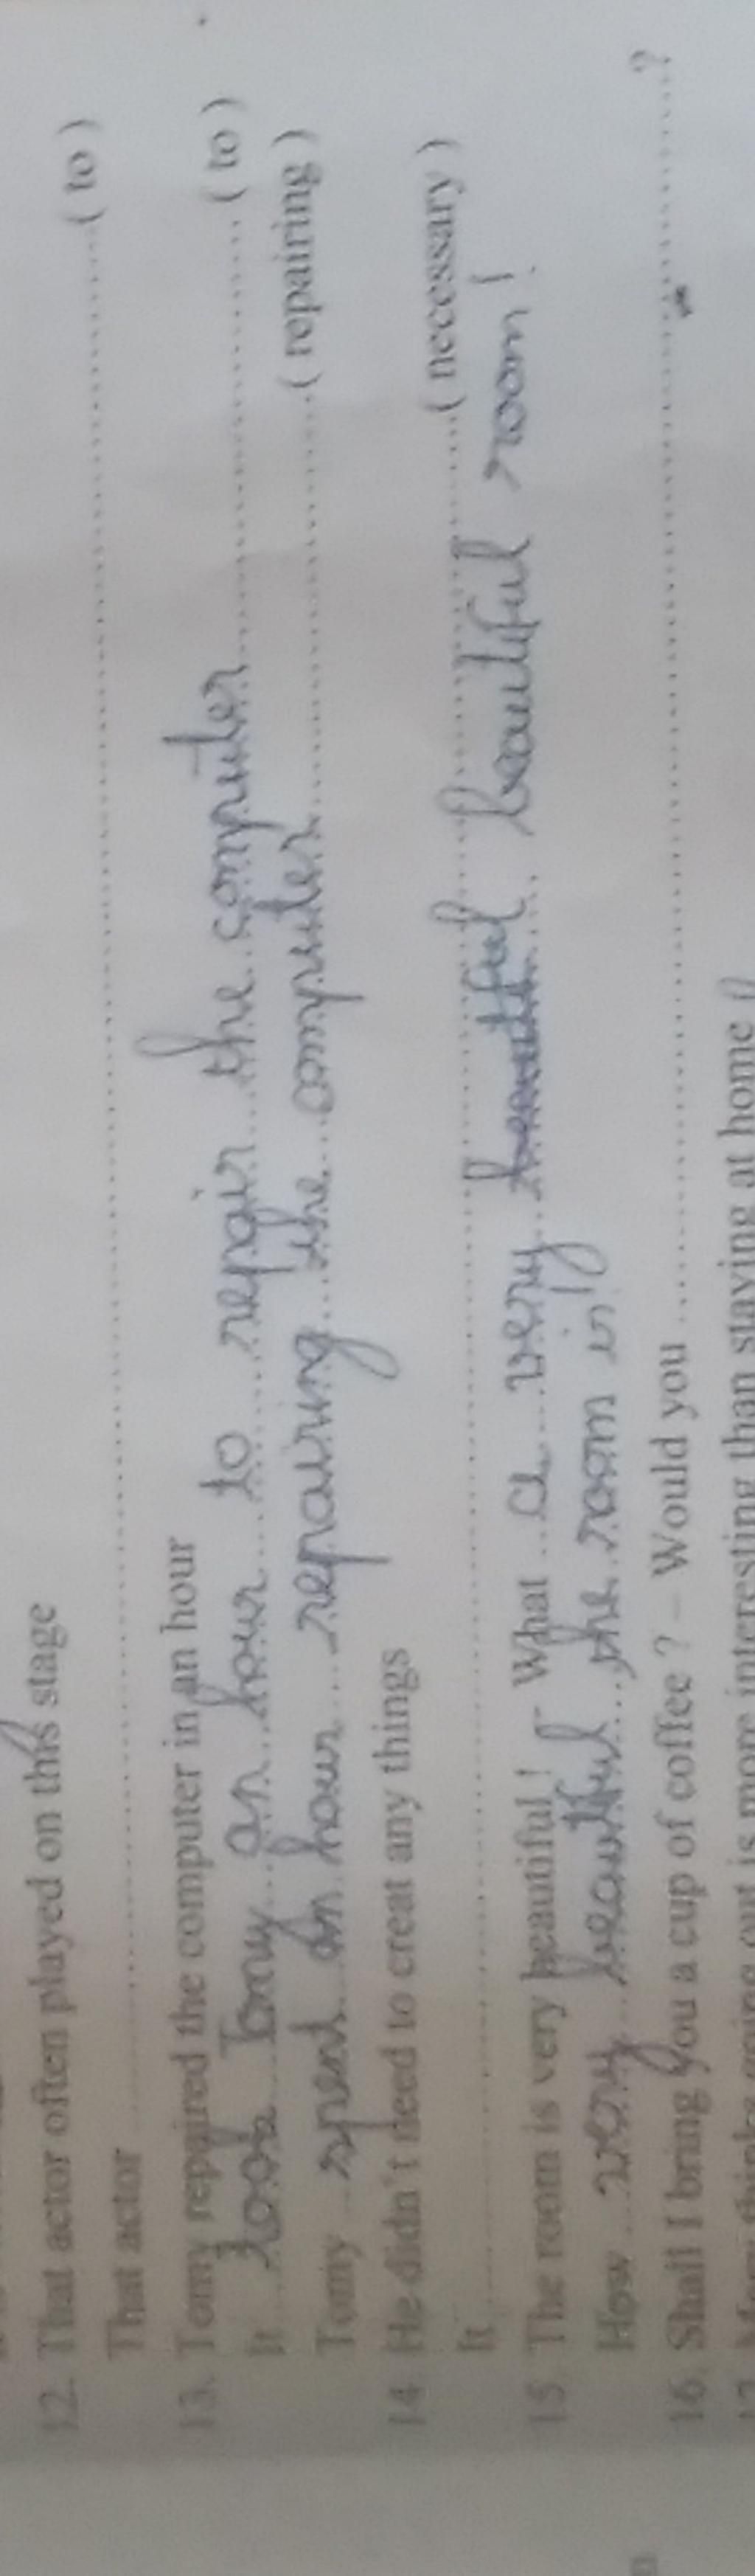 12. That actor often played on this stage
That actor ........ ( to )
13. Tomy repaired the computer in an hour
It took Tomy an hour to repair the computer ........ ( to )
Tomy spent an hour repairing the computer ........ ( repairing )
14. He didn't need to creat any things
It ........ ( necessary )
15. The room is very beautiful ! - What a very beautiful room!
How very beautiful the room is!
16. Shall I bring you a cup of coffee ? - Would you ........ ?
is more interesting than staying at home